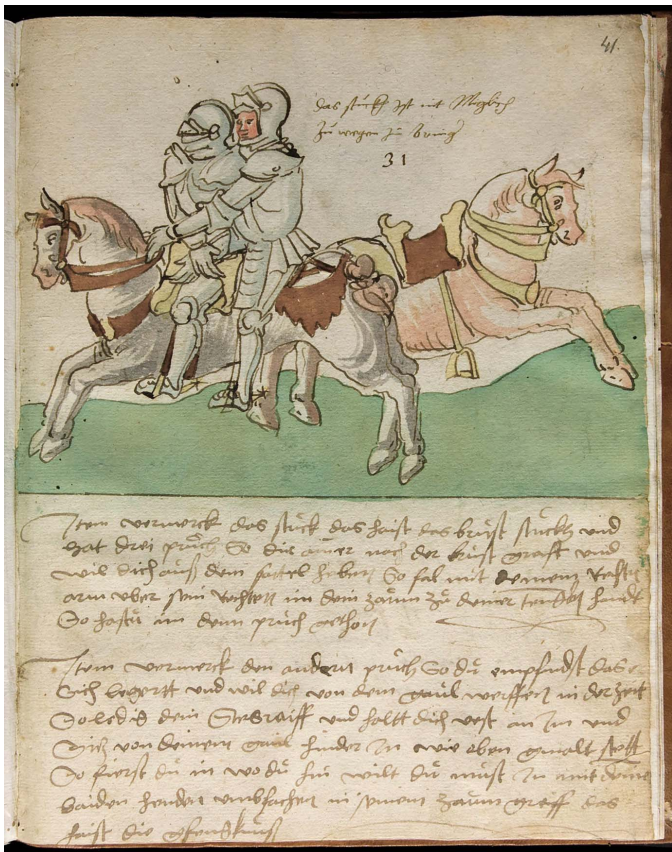 41.
das stückh ist mit
zu wegen zu bringen
31
Item vermerck das stück das haist das brust stückh und
hat drei prüch So dir ainer nach der brust greift und
wil dich auß dem sattel heben So fal mit deinem rechten
arm uber sein rechten im dein zaum zu deiner handt
So hastu im denn pruch gethon
Item vermerck den andern pruch So du empfindst das er
Sich begertt und wil dich von dem gaul werffen in der zeit
So ledig dein Stegraiff und haltt dich vest an Im und
Sitz von deinem gaul hinder In wie oben gemalt stett
So fierst du in wo du hin wilt du must In mit deine
baiden henden umbfachen in seinem zaum greiff das
haist die